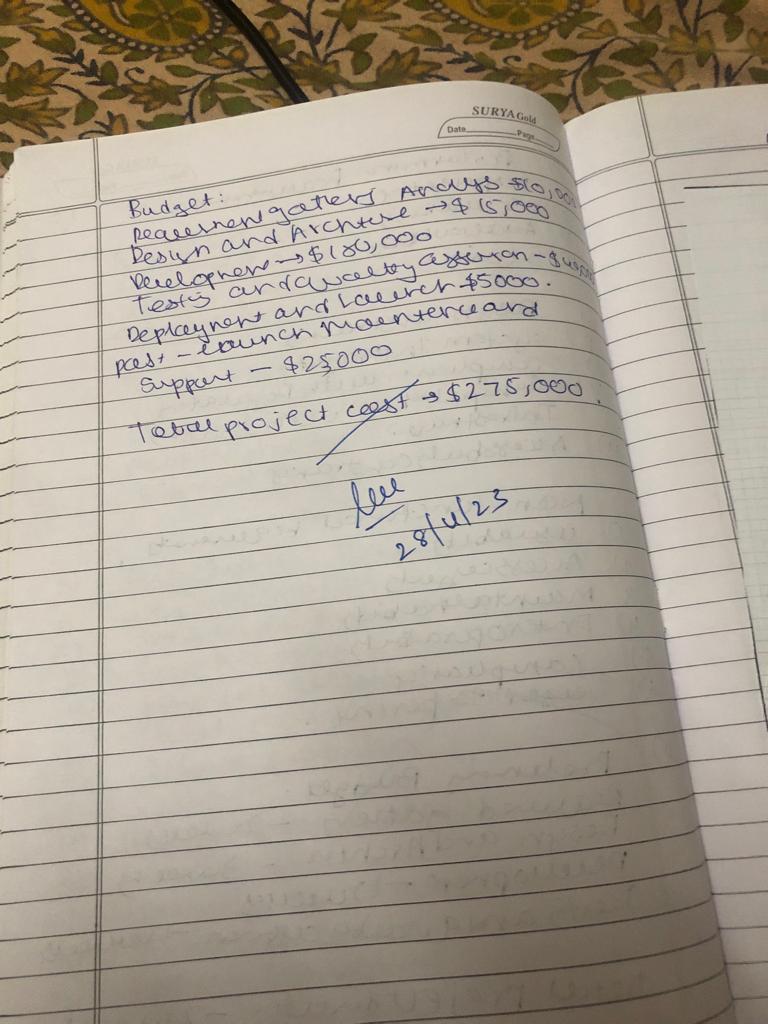 SURYA Gold
Date Page
Budget:
gathers Analys $10,000
Design and Archture → $15,000
Development → $180,000
Tests and Quality assuran - $40,000
Deployment and launch $5000.
post - launch maintence and
Support - $25000
Total project cost → $275,000.
28/11/23